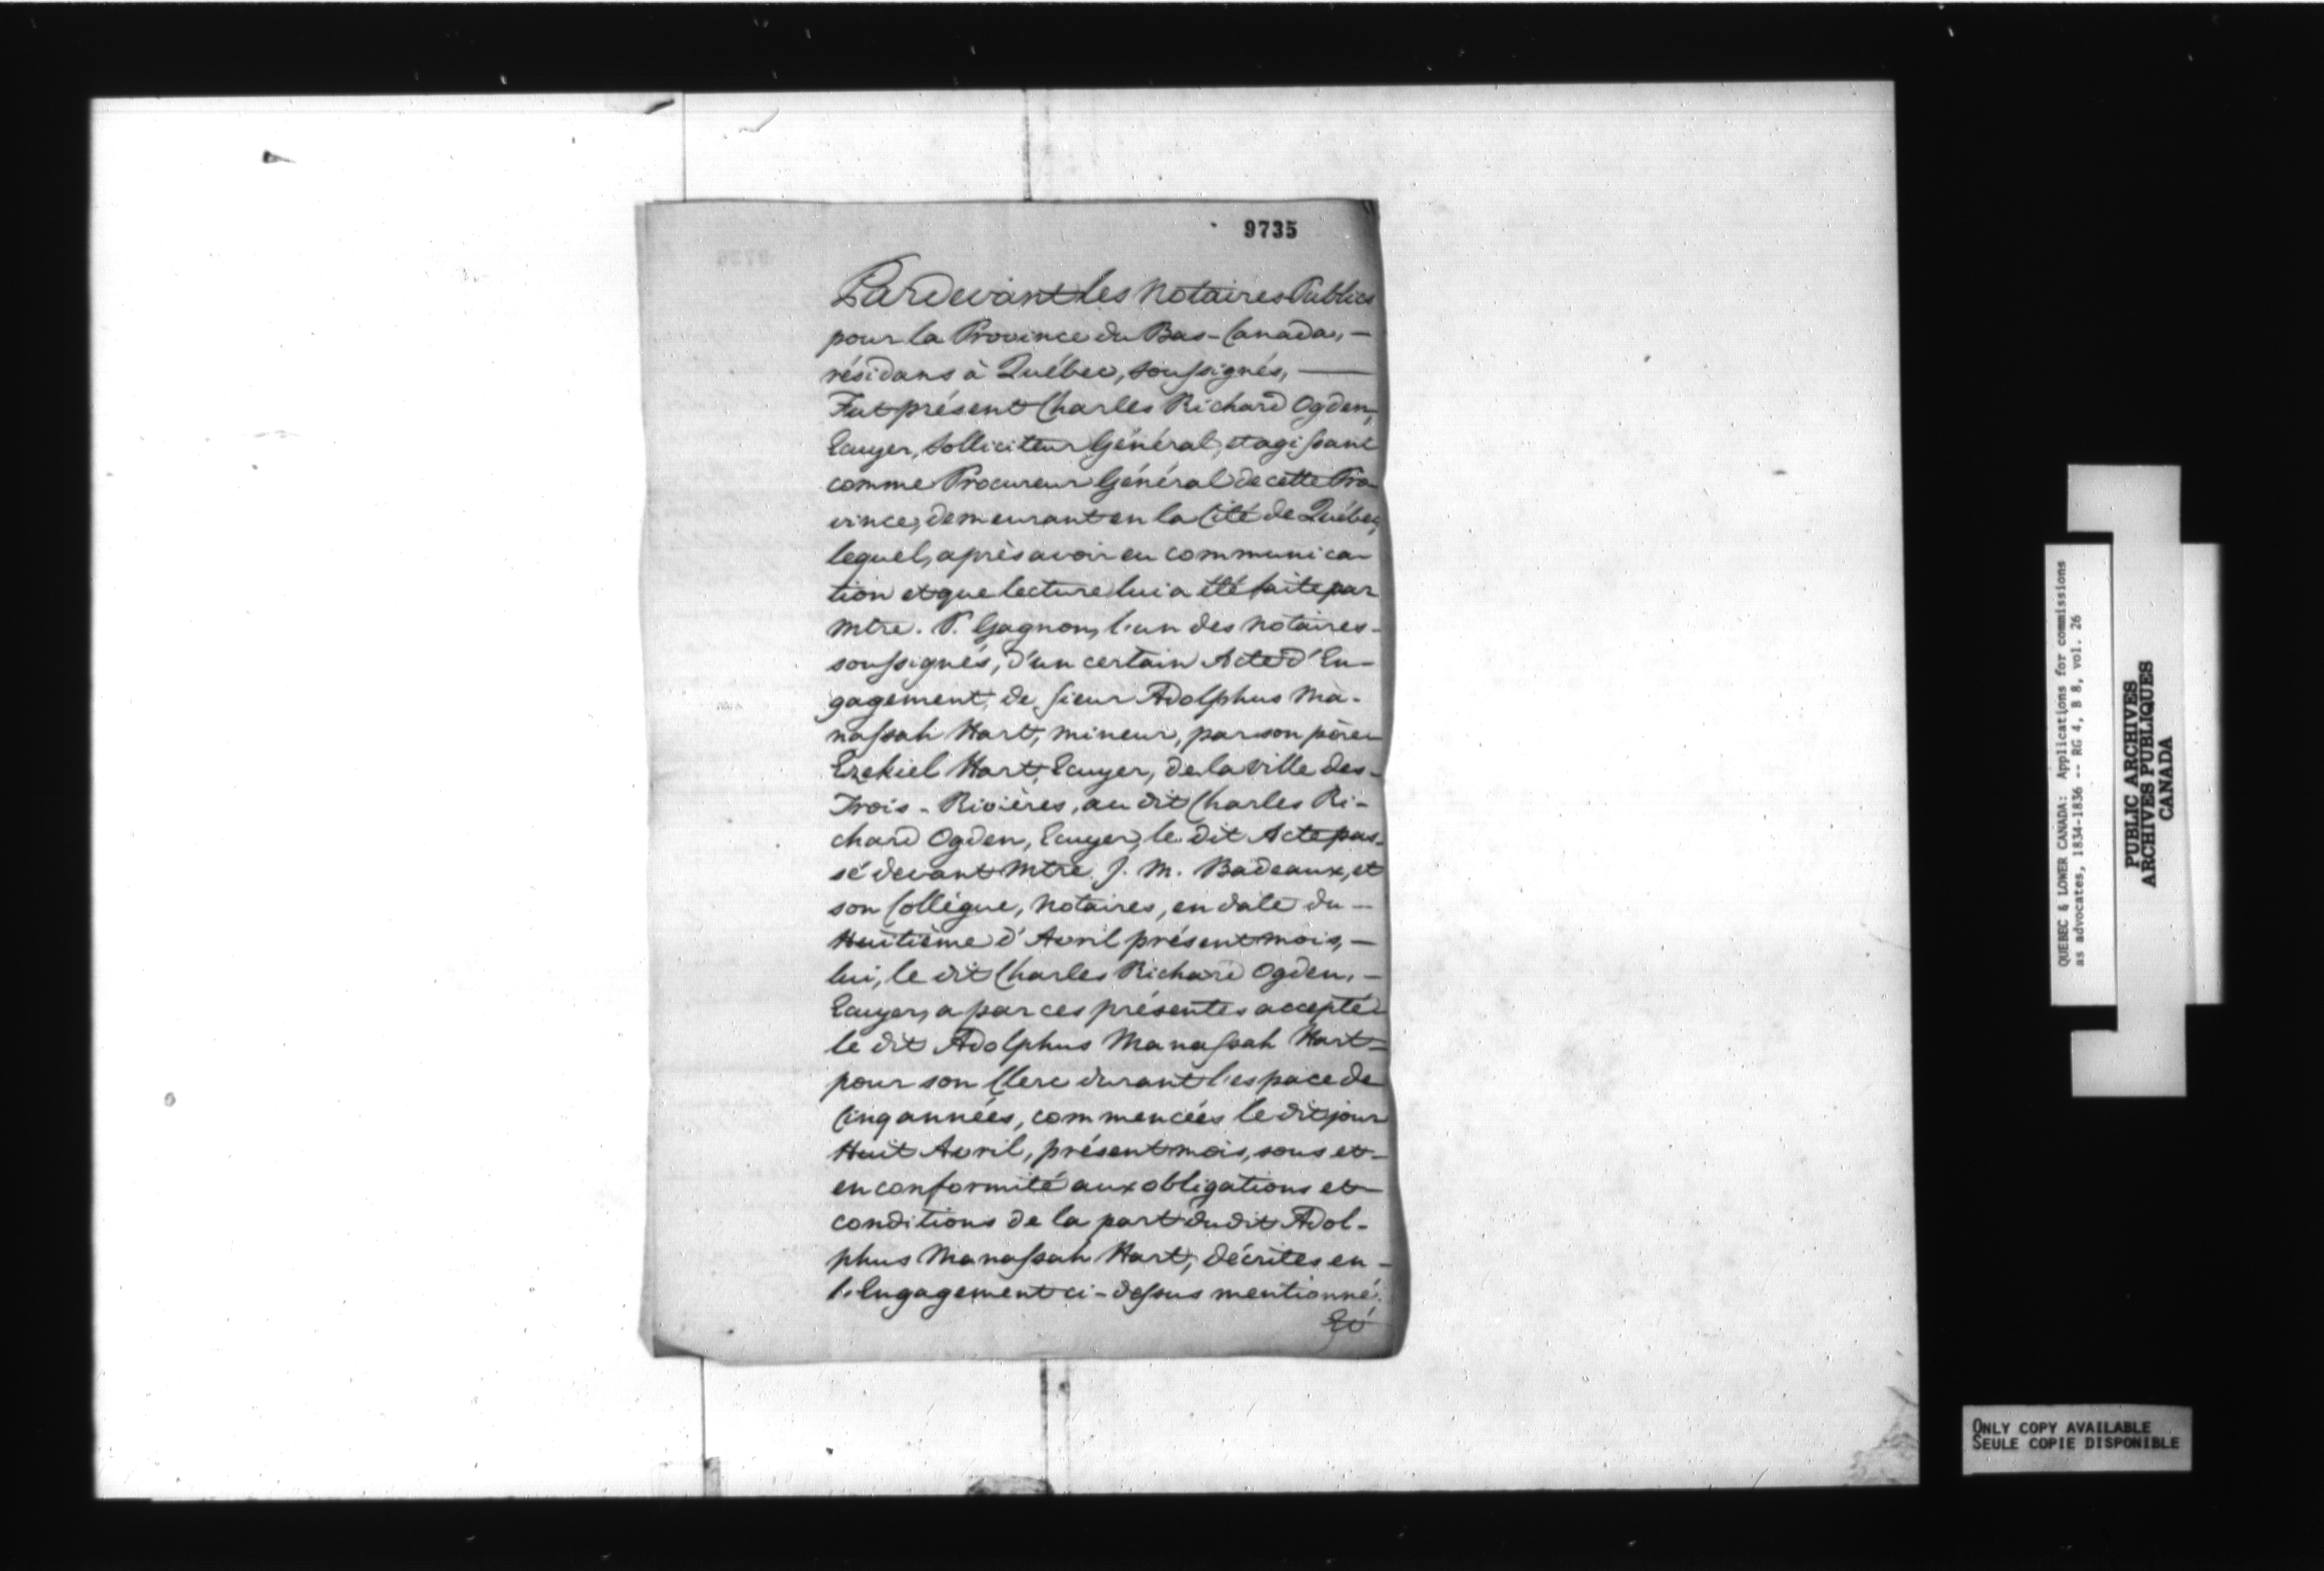 9735
Pardevant les Notaires Publics
pour la Province du Bas-Canada, —
résidans à Québec, soussignés, —
Fut présent Charles Richard Ogden,
Ecuyer, Solliciteur Général, et agissant
comme Procureur Général de cette Pro
vince, demeurant en la Cité de Québec,
lequel, après avoir eu communica-
tion et que lecture lui a été faite par
Mtre. P. Gagnon, l'un des Notaires-
soussignés, d'un certain Acte d'En-
gagement, de Sieur Adolphus Ma-
nassah Hart, mineur, par son père
Ezekiel Hart, Ecuyer, de la Ville des-
Trois-Rivières, au dit Charles Ri-
chard Ogden, Ecuyer, le dit Acte pas-
sé devant Mtre. J. M. Badeaux, et
son Collègue, Notaires, en date du —
Huitième d'Avril présent mois, —
lui, le dit Charles Richard Ogden, —
Ecuyer, a par ces présentes accepté
le dit Adolphus Manassah Hart=
pour son Clerc durant l'espace de
Cinq années, commencées le dit jour
Huit Avril, présent mois, sous et-
en conformité aux obligations et
conditions de la part du dit Adol-
phus Manassah Hart, décrites en -
l'Engagement ci-dessus mentionné.
QUEBEC & LOWER CANADA: Applications for commissions
as advocates, 1834-1836 -- RG 4, B 8, vol. 26
PUBLIC ARCHIVES
ARCHIVES PUBLIQUES
CANADA
ONLY COPY AVAILABLE
SEULE COPIE DISPONIBLE